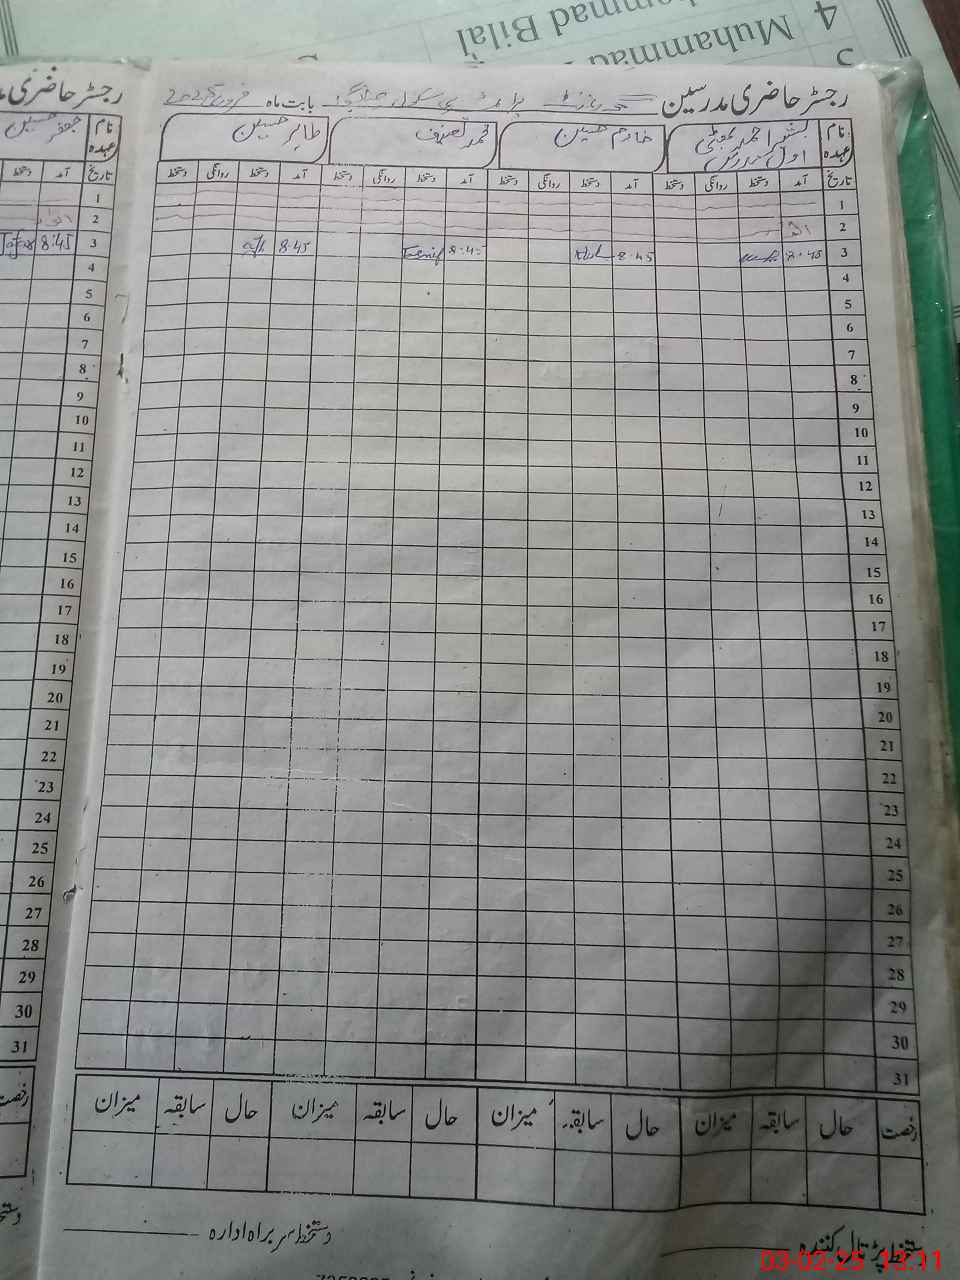 4 Muhammad Bilal
3 Muhammad
رجسٹر حاضری مدرسین گورنمنٹ سکول بابت ماہ فروری 2025
نام عہدہ بشیر احمد بھٹی اول مدرس خادم حسین محمد تصنیف طاہر حسین
تاریخ آمد دستخط روانگی دستخط آمد دستخط روانگی دستخط آمد دستخط روانگی دستخط آمد دستخط روانگی دستخط
1
2 اتوار
3 8:45 8:45 Tasnif 8:45 8:45
4
5
6
7
8
9
10
11
12
13
14
15
16
17
18
19
20
21
22
23
24
25
26
27
28
29
30
31
رخصت حال سابقہ میزان حال سابقہ میزان حال سابقہ میزان حال سابقہ میزان
دستخط پڑتال کنندہ دستخط سربراہ ادارہ
رجسٹر حاضری
نام عہدہ جعفر حسین
تاریخ آمد دستخط
1
2 اتوار
3 8:45 Jafar
4
5
6
7
8
9
10
11
12
13
14
15
16
17
18
19
20
21
22
23
24
25
26
27
28
29
30
31
رخصت
03-02-25 13:11